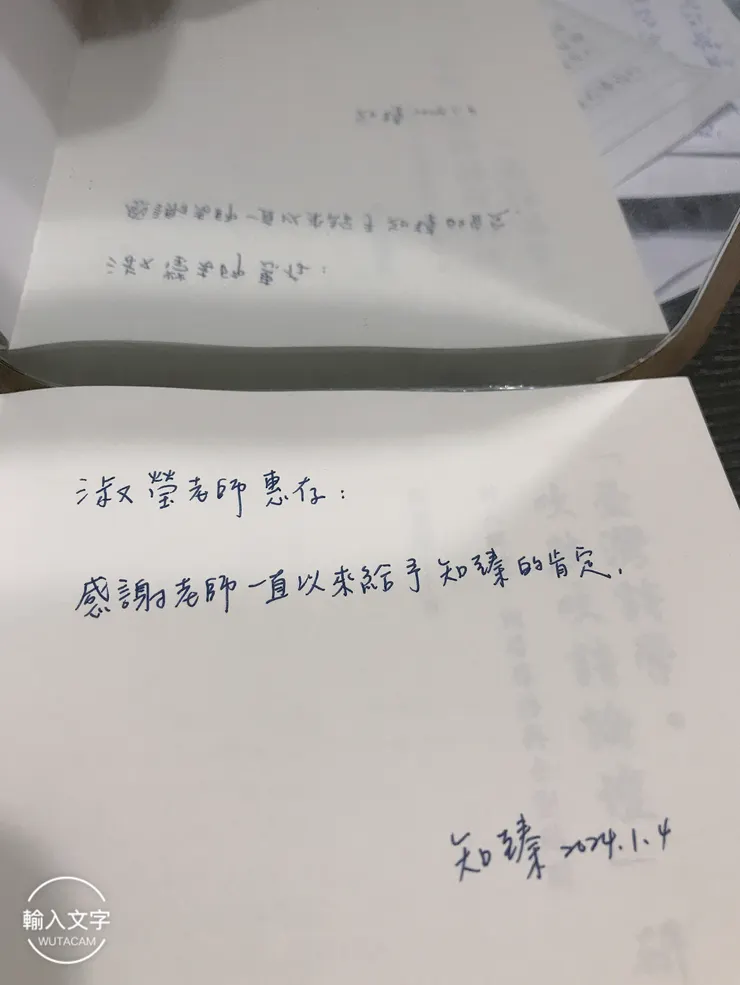 淑瑩老師惠存：
感謝老師一直以來給予知臻的肯定.
知臻 2024.1.4
輸入文字
WUTACAM